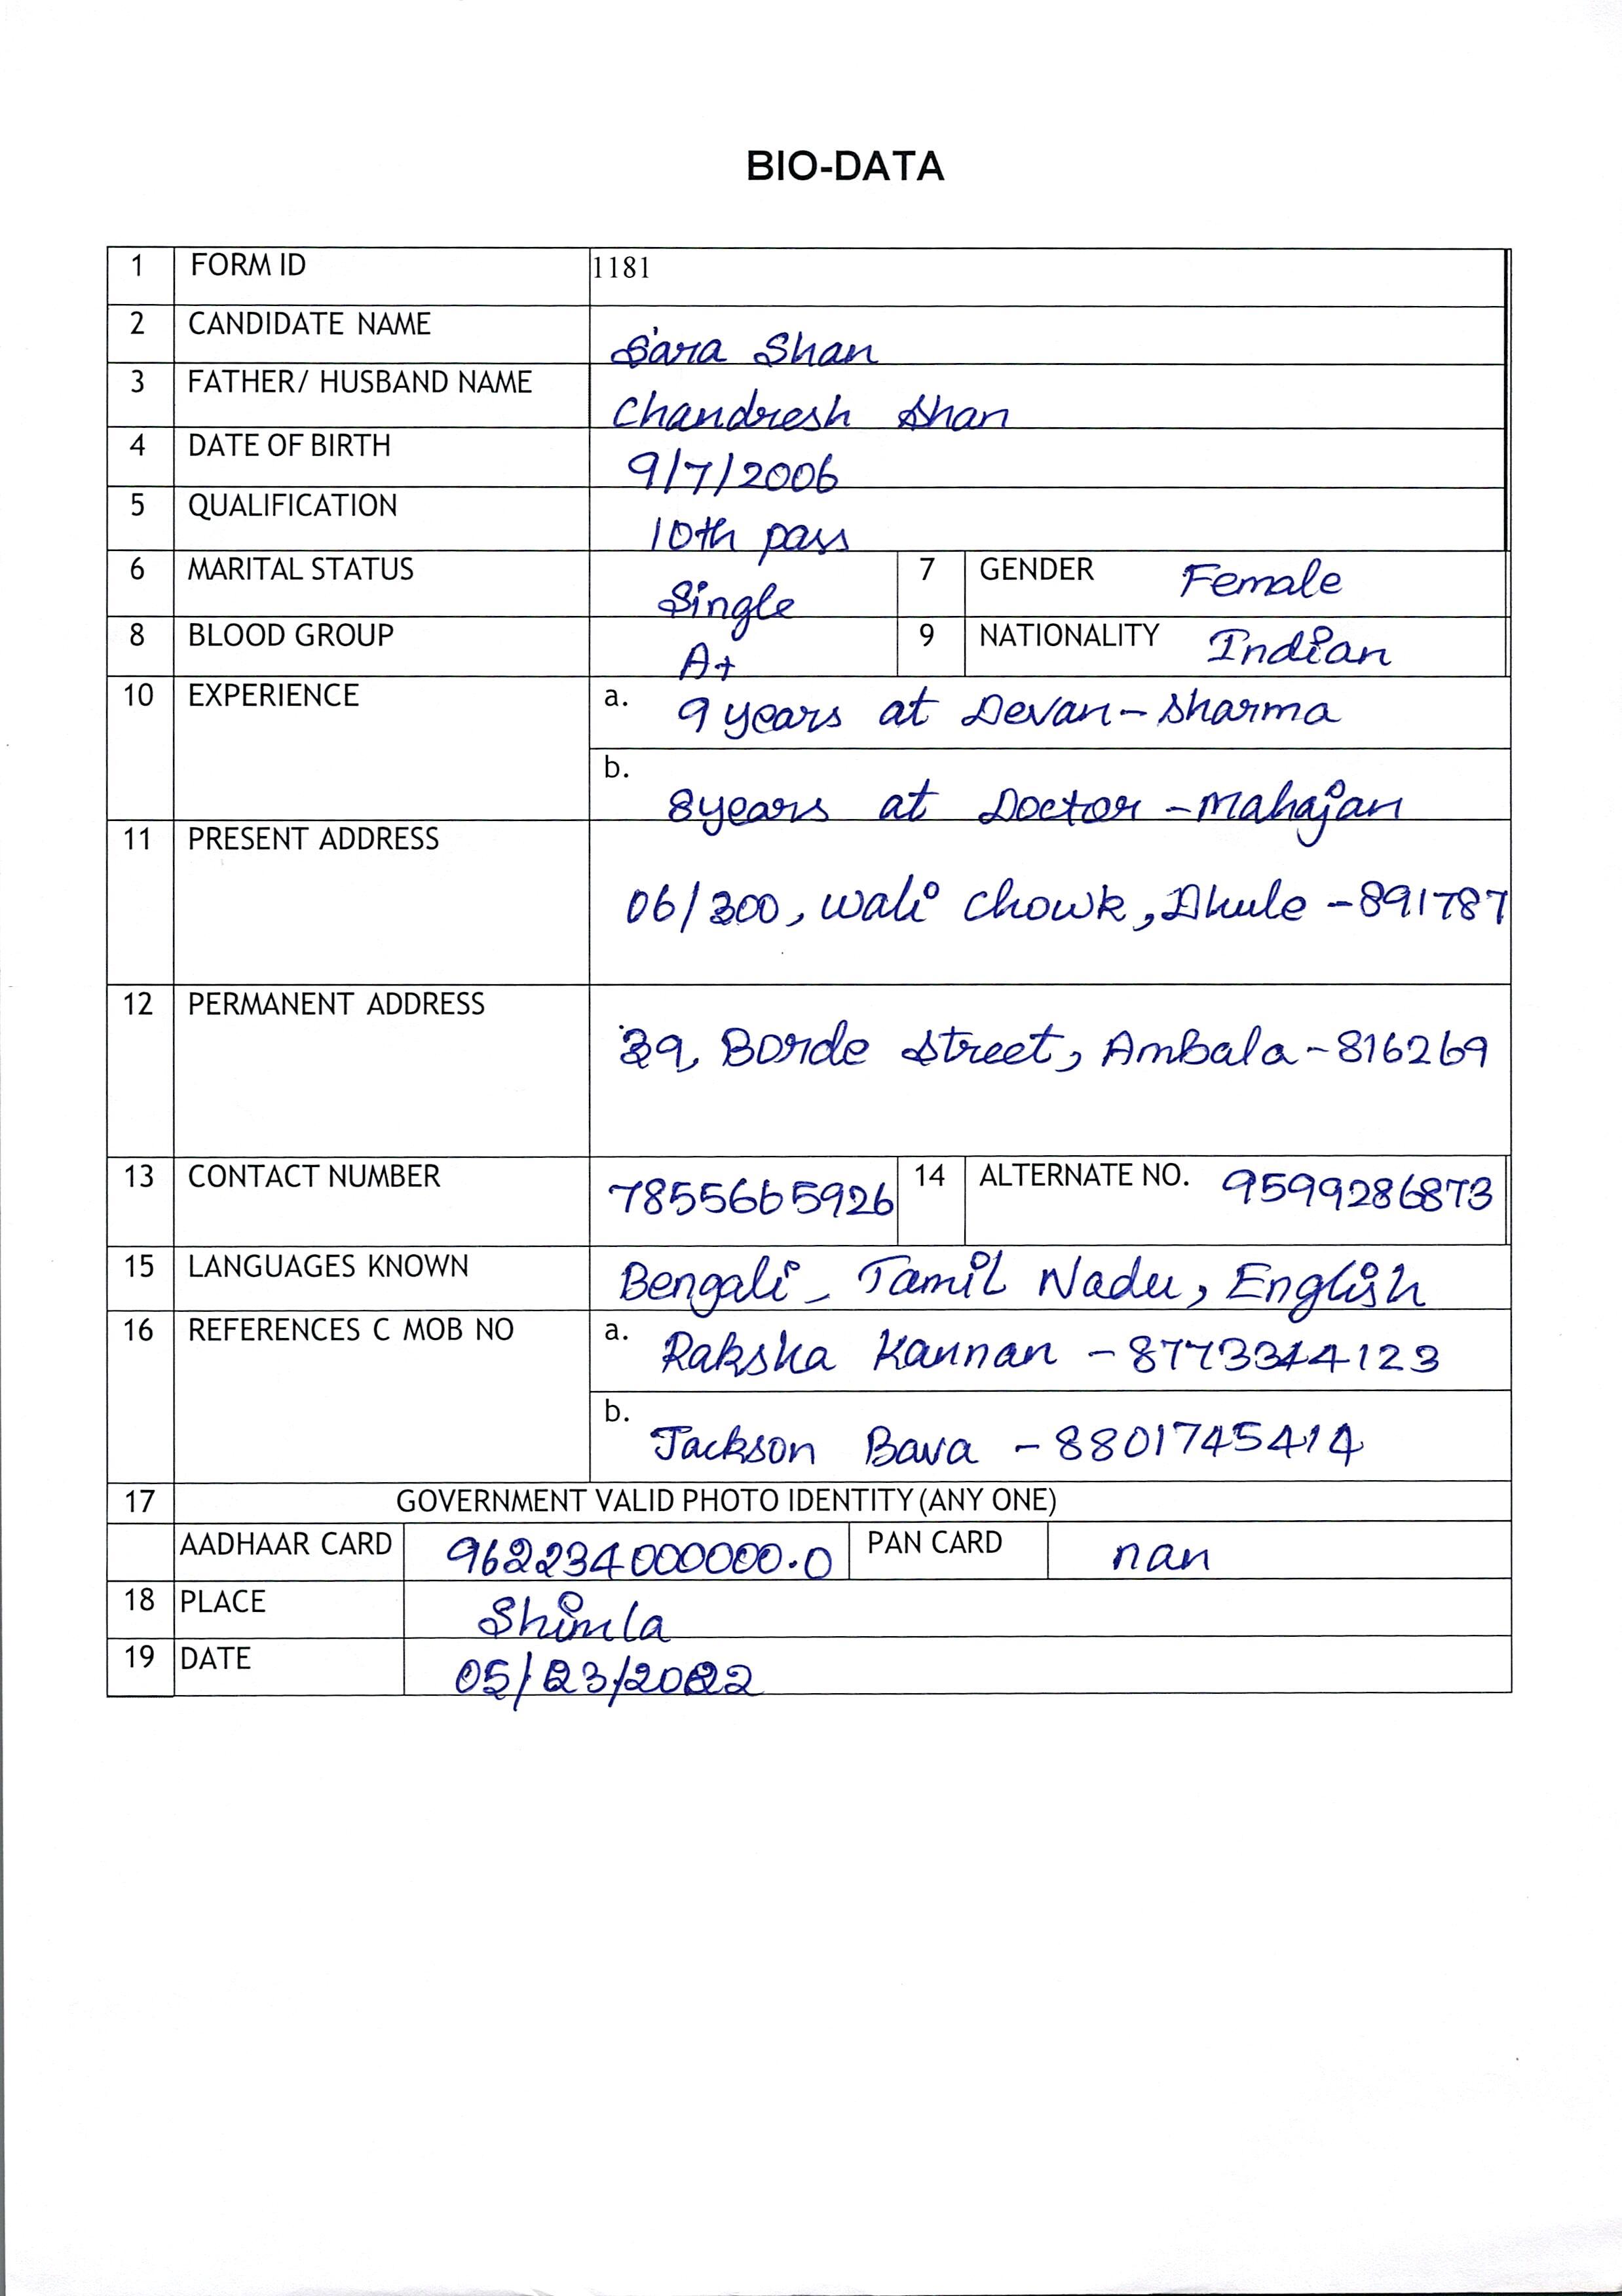 BIO-DATA
1 FORM ID 1181
2 CANDIDATE NAME Sara Shan
3 FATHER/ HUSBAND NAME Chandresh Shan
4 DATE OF BIRTH 9/7/2006
5 QUALIFICATION 10th pass
6 MARITAL STATUS Single 7 GENDER Female
8 BLOOD GROUP A+ 9 NATIONALITY Indian
10 EXPERIENCE a. 9 years at Devan-Sharma
b. 8years at Doctor -Mahajan
11 PRESENT ADDRESS
06/300, Wali Chowk, Dhule -891787
12 PERMANENT ADDRESS
39, Borde Street, Ambala-816269
13 CONTACT NUMBER 7855665926 14 ALTERNATE NO. 9599286873
15 LANGUAGES KNOWN Bengali, Tamil Nadu, English
16 REFERENCES C MOB NO a. Raksha Kannan -8773344123
b. Jackson Bava -8801745414
17 GOVERNMENT VALID PHOTO IDENTITY (ANY ONE)
AADHAAR CARD 962234000000.0 PAN CARD nan
18 PLACE Shimla
19 DATE 05/23/2022